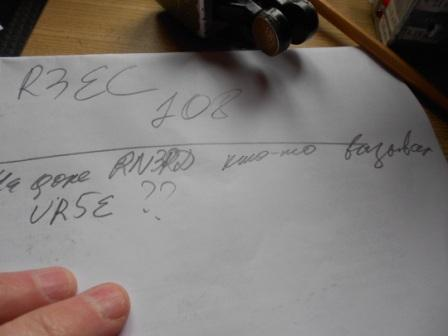 R3EC
108
на фоне RN3RD кто-то вызывал
UR5E ??